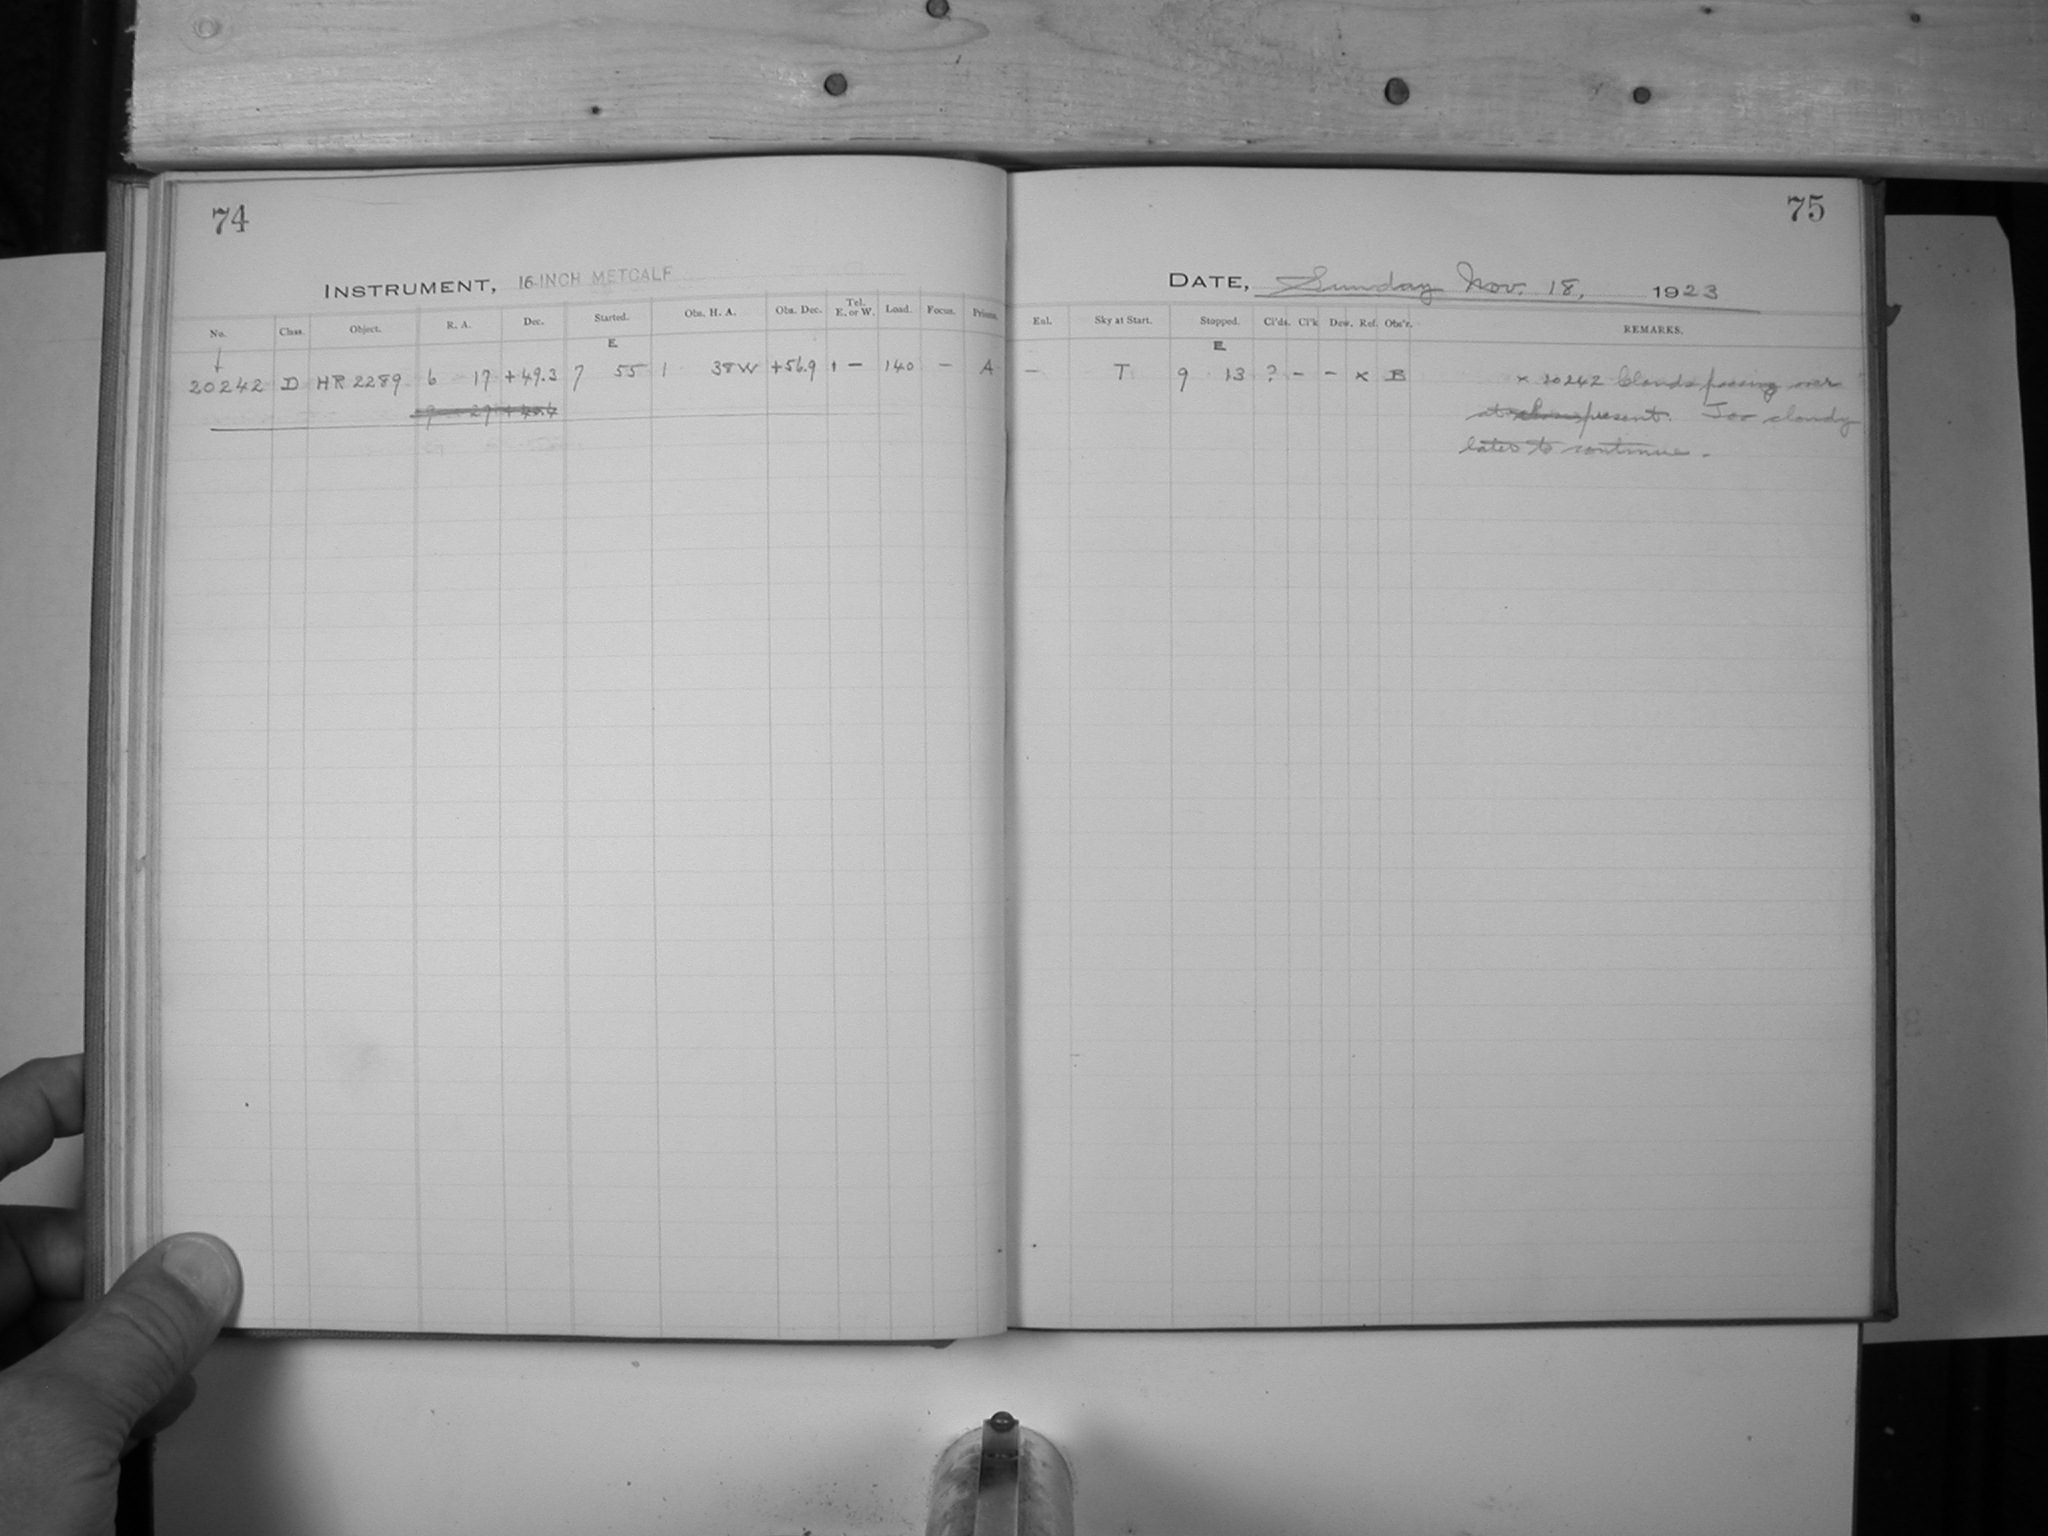 74
INSTRUMENT, 16-INCH METCALF
No. Class. Object. R. A. Dec. Started. Obs. H. A. Obs. Dec. Tel. E. or W. Load. Focus. Prisms.
E
20242 D HR 2289 6 17 +49.3 7 55 1 38 W +56.9 — 140 — A
9 29 +40.4
75
DATE, Sunday Nov. 18, 1923
Enl. Sky at Start. Stopped. Cl'ds. Cl'k Dew. Ref. Obs'r. REMARKS.
E
— T 9 13 ? – – x B x 20242 Clouds passing over
at present. Too cloudy
later to continue.